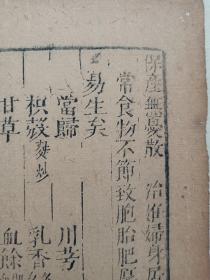 保產無憂散　治雊婦身居
常食物不節致胞胎肥厚
易生矣
當歸　川芎
枳殼麩炒　乳香
甘草　血餘